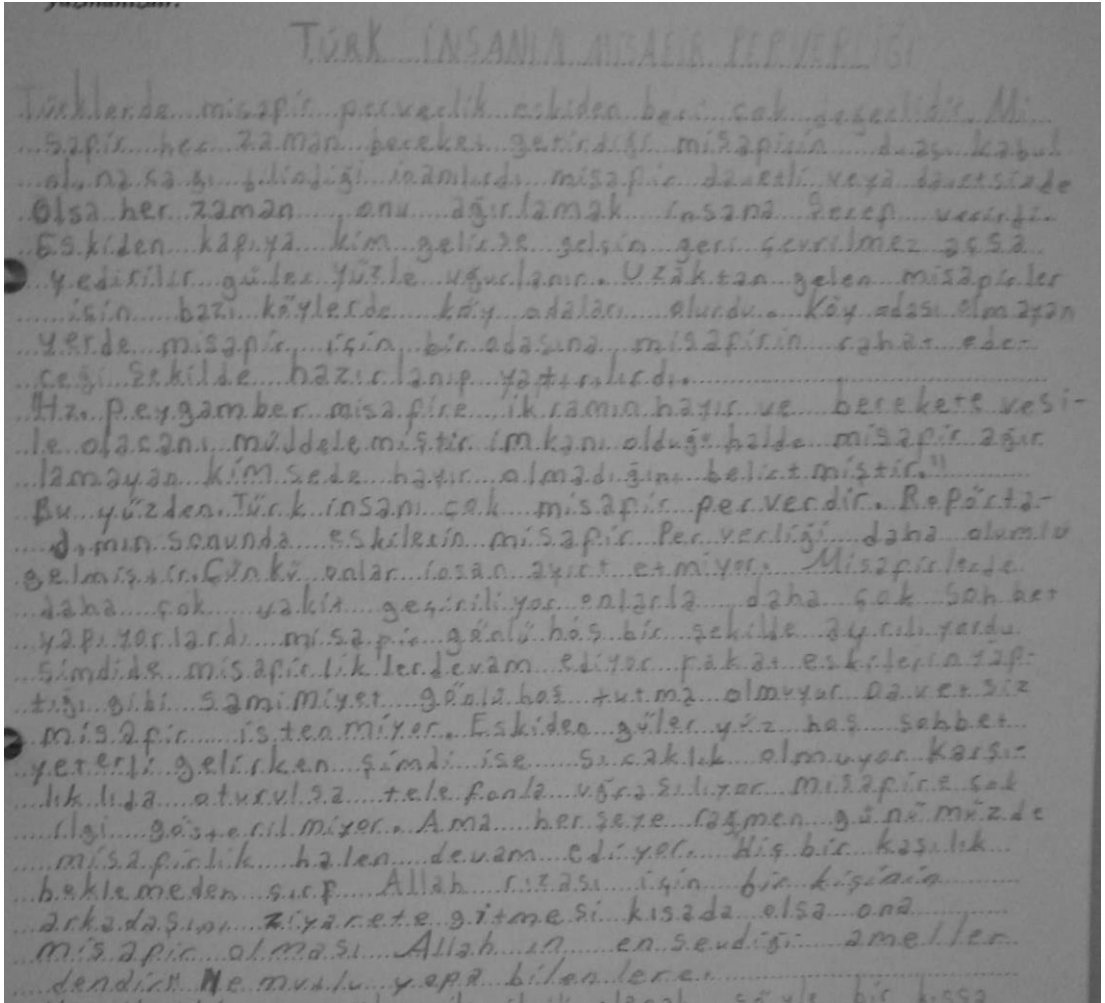 yazmanızdır.
TÜRK İNSANIN MİSAFİR PERVERLİĞİ
Türklerde misafir perverlik eskiden beri çok değerlidir. Mi
safir her zaman bereket getirdiği misafirin duası kabul
olunacağı bilindiği inanılırdı misafir davetli veya davetsizde
Olsa her zaman onu ağırlamak insana Şeref verirdi.
Eskiden kapıya kim gelirse gelsin geri çevrilmez açsa
yedirilir güler yüzle uğurlanır. Uzaktan gelen misafirler
için bazı köylerde köy odaları olurdu. Köy odası olmayan
yerde misafir için bir odasına misafirin rahat ede-
ceği Şekilde hazırlanıp yatırılırdı.
"Hz. Peygamber misafire ikramın hayır ve berekete vesi-
le olacanı müjdelemiştir imkanı olduğu halde misafir ağır
lamayan kimsede hayır olmadığını belirtmiştir."
Bu yüzden Türk insanı çok misafir perverdir. Röpörta-
jımın sonunda eskilerin misafir Perverliği daha olumlu
gelmiştir. Çünkü onlar insan ayırt etmiyor. Misafirlerde
daha çok vakit geçiriliyor onlarla daha çok Sohbet
yapıyorlardı misafir gönlü hoş bir şekilde ayrılıyordu
Şimdide misafirlikler devam ediyor fakat eskilerin yap-
tığı gibi samimiyet gönlü hoş tutma olmuyor Davetsiz
misafir istenmiyor. Eskiden güler yüz hoş sohbet
yeterli gelirken şimdi ise sıcaklık olmuyor karşı-
lıklıda oturulsa telefonla uğraşılıyor misafire çok
ilgi gösterilmiyor. Ama herşeye rağmen günümüzde
misafirlik halen devam ediyor. Hiç bir kaşılık
beklemeden sırf Allah rızası için bir kişinin
arkadaşını ziyarete gitmesi kısada olsa ona
misafir olması Allah ın en sevdiği ameller
dendir" Ne mutlu yapa bilenlere.